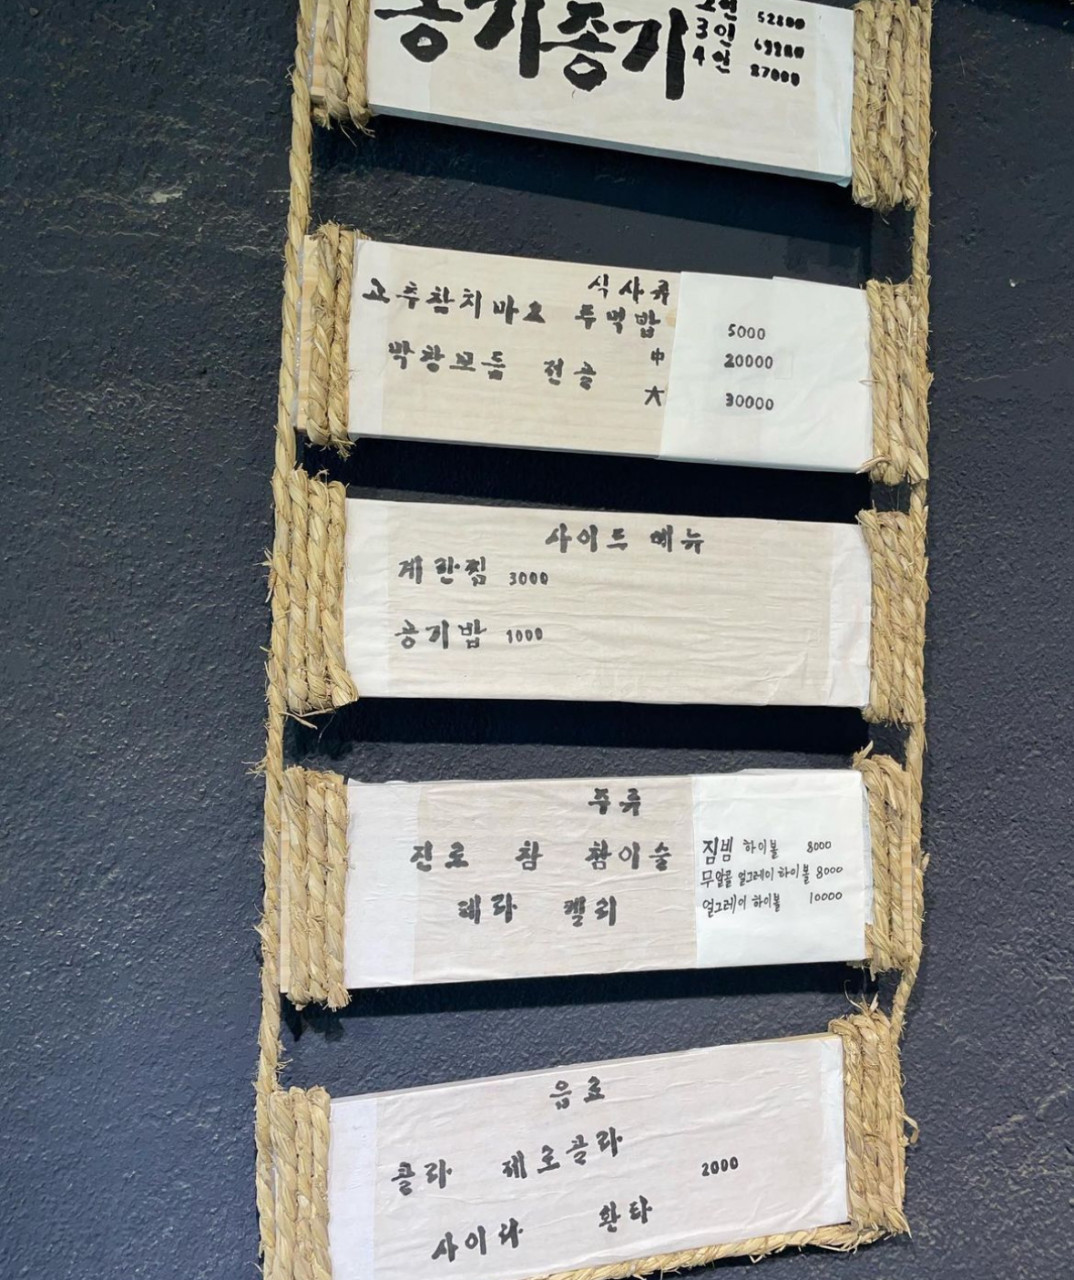 옹기종기
2인 52800
3인
4인 87000
식사류
고추참치마요 주먹밥 5000
박광모듬 전골 中 20000
大 30000
사이드 메뉴
계란찜 3000
공기밥 1000
주류
진로 참 참이슬
테라 켈리
짐빔 하이볼 8000
무알콜 얼그레이 하이볼 8000
얼그레이 하이볼 10000
음료
콜라 제로콜라 2000
사이다 환타